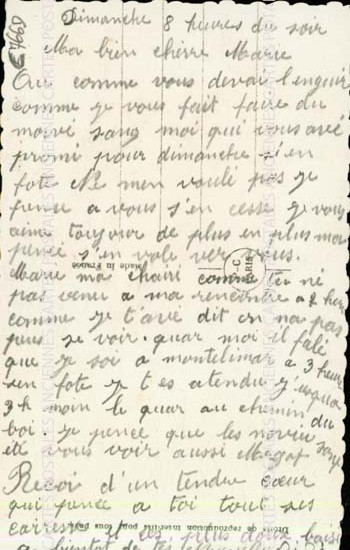 Dimanche 8 heures du soir
Ma bien cherre Marie
Oui comme vous devai l'enquir
comme je vous fait faire du
movè sang moi qui vous avé
promi pour dimanche s'en
fote Ne men voulé pas je
pence a vous s'en cesse je vous
aime toujour de plus en plus ma
pencé s'en vole ver vous.
Marie ma chairi comme tu ne
pas venu a ma rencontre a 2 heur
comme je t'avé dit on na pas
peu se voir. quar moi il falé
que je soi a montelimar a 3 heure
sen fote je t'es atendu j'usqua
3h moin le quar au chemin du
boi. je pence que les
vous voir aussi
Recoi d'un tendre cœur
qui pence a toi tout ses
caresse les plus doux baisé
a bientot de tes
Made in France
Droits de reproduction interdits pour tous pays
PARIS